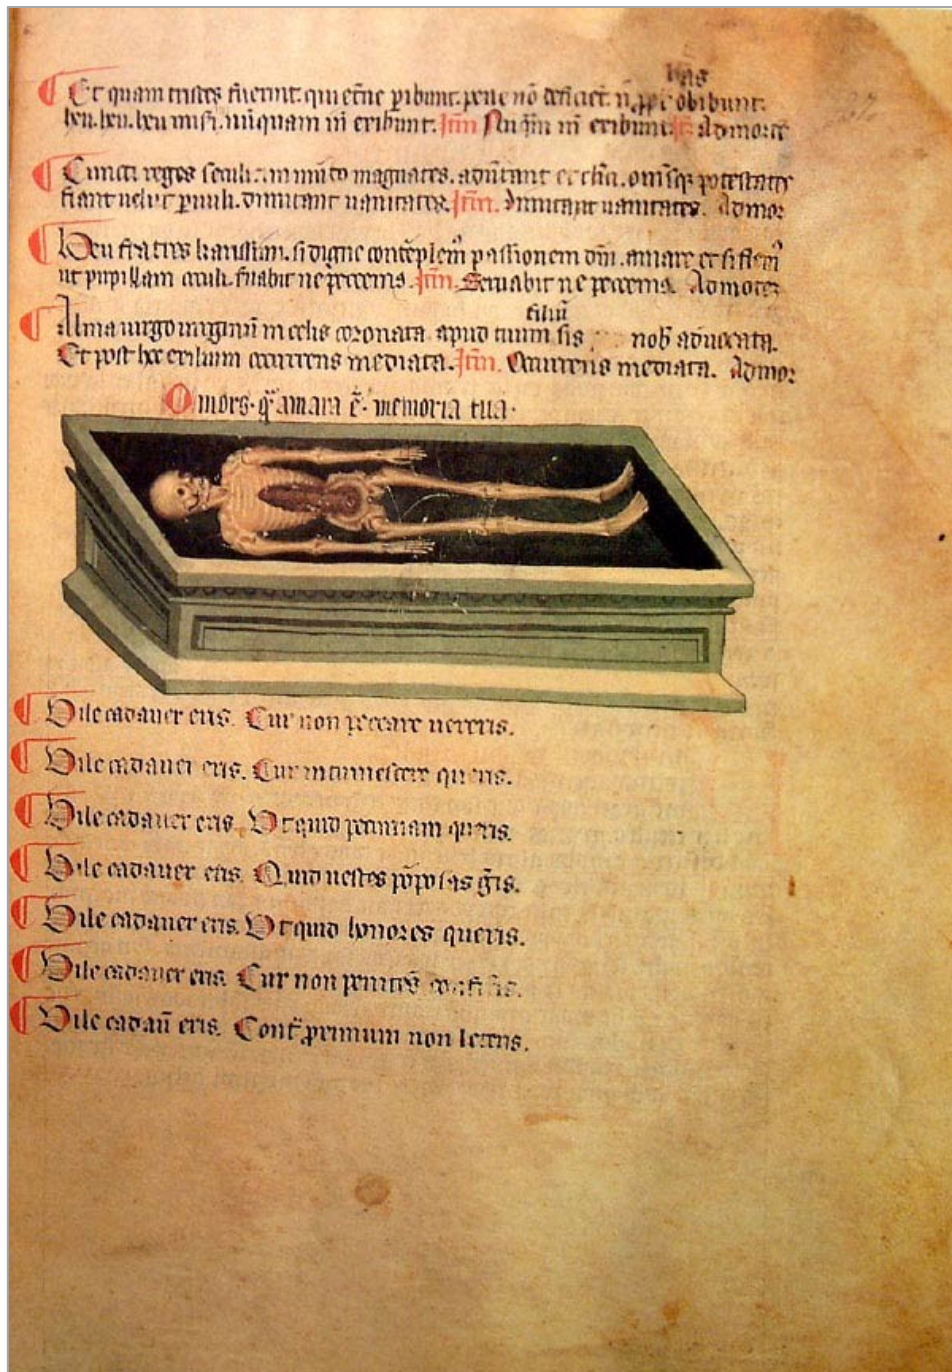 has
Et quam tristes fuerint qui etñe p̲ibunt. pene nõ deficiẽt. ñ. obibunt.
heu. heu. heu miseri. nũquam in exibunt. Itm̃ Nũq̃m in exibunt. Ad mortẽ
Cuncti reges seculi in mũdo magnates. aduertant omnisq̃ potestates
fiant uelut paruuli. dimitant uanitates. Itm̃. dimitant uanitates. Ad mor
Heu fratres karissimi. si digne contẽplem̃ passionem dm̃. amare et si flem̃
ut pupillam occuli. s̃uabit ne peccemus. Itm̃. Seruabit ne peccemus. Ad mortẽ
filiũ
Alma uirgo uirginũ in celis coronata. apud tuum sis nob̃ aduocata.
Et post hoc exilium occurrens mediata. Itm̃. Occurrens mediata. Ad mor
O mors. q̃ amara ẽ. memoria tua.
Vile cadauer eris. Cur non peccare uereris.
Vile cadauer eris. Cur intumescere queris.
Vile cadauer eris. Vt quid peccuniam queris.
Vile cadauer eris. Quid uestes põposas g̃is.
Vile cadauer eris. Vt quid honores queris.
Vile cadauer eris. Cur non penitẽs confiteris.
Vile cadaũ eris. Contr̃ proximum non leteris.